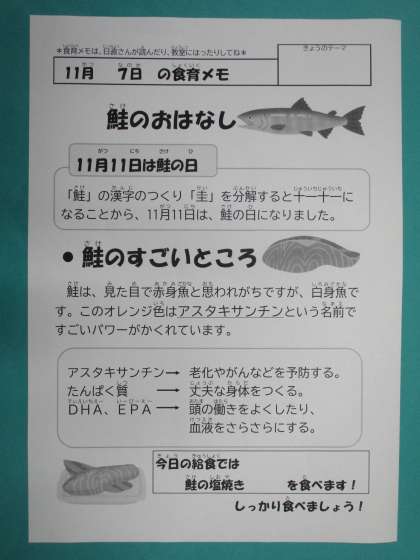 ＊食育メモは、日直さんが読んだり、教室にはったりしてね＊
きょうのテーマ
11月　7日　の食育メモ
鮭のおはなし
11月11日は鮭の日
「鮭」の漢字のつくり「圭」を分解すると十一十一に
なることから、11月11日は、鮭の日になりました。
●鮭のすごいところ
鮭は、見た目で赤身魚と思われがちですが、白身魚で
す。このオレンジ色はアスタキサンチンという名前で
すごいパワーがかくれています。
アスタキサンチン→ 老化やがんなどを予防する。
たんぱく質 → 丈夫な身体をつくる。
DHA、EPA → 頭の働きをよくしたり、
血液をさらさらにする。
今日の給食では
鮭の塩焼き　を食べます！
しっかり食べましょう！